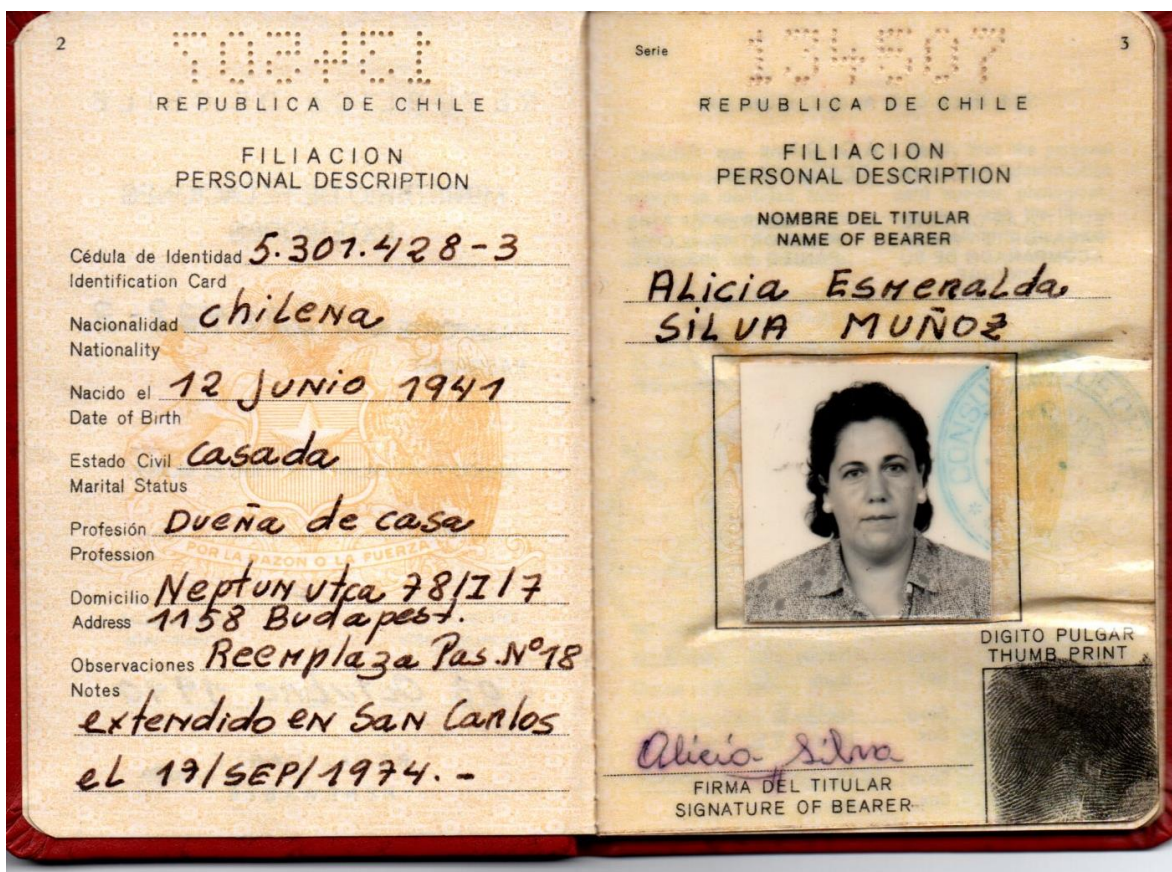 2
134507
REPUBLICA DE CHILE
FILIACION
PERSONAL DESCRIPTION
Cédula de Identidad 5.301.428-3
Identification Card
Nacionalidad chilena
Nationality
Nacido el 12 Junio 1941
Date of Birth
Estado Civil casada
Marital Status
Profesión Dueña de casa
Profession
POR LA RAZON O LA FUERZA
Domicilio Neptun utca 78/I/7
Address 1158 Budapest.
Observaciones Reemplaza Pas. Nº18
Notes
extendido en San Carlos
el 17/SEP/1974.-
Serie 134507 3
REPUBLICA DE CHILE
FILIACION
PERSONAL DESCRIPTION
NOMBRE DEL TITULAR
NAME OF BEARER
Alicia Esmeralda
SILVA MUÑOZ
DIGITO PULGAR
THUMB PRINT
Alicia Silva
FIRMA DEL TITULAR
SIGNATURE OF BEARER